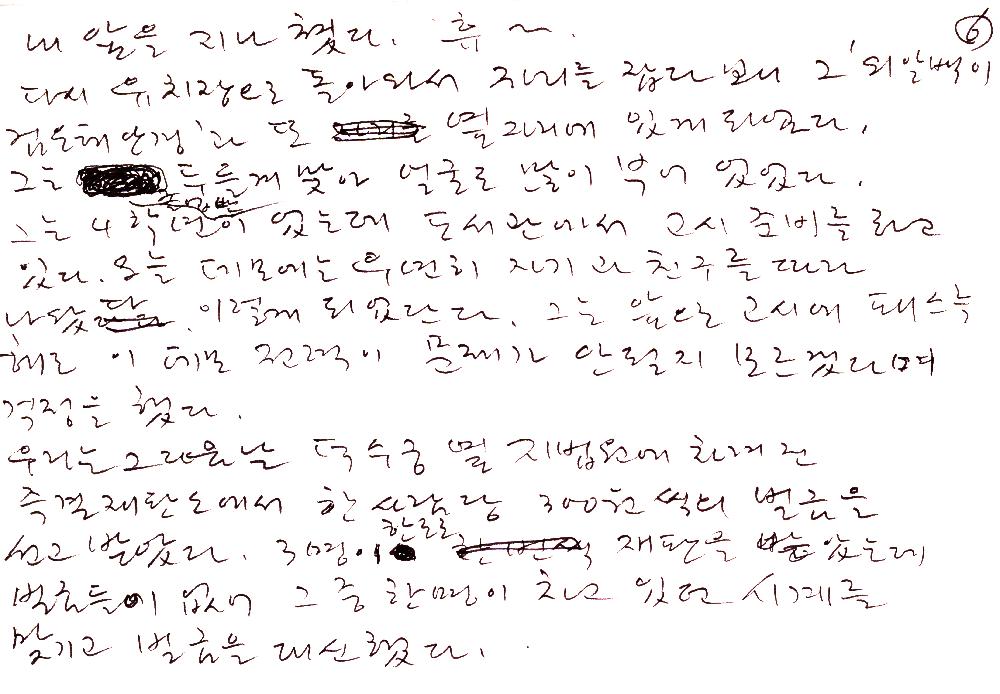 ⑥
내 앞을 지나 쳤다. 휴 ~.
다시 유치장으로 돌아와서 자리를 잡다 보니 그 '외알백이
검은테 안경'과 또 옆자리에 있게 되었다.
그는 두들겨 맞아 얼굴로 많이 부어 있었다.
그는 4학년이 있는데 도서관에서 고시 준비를 하고
있다. 오늘 데모에는 우연히 자기 과 친구를 따라
나왔 이렇게 되었단다. 그는 앞으로 고시에 패스
해도 이 데모 전력이 문제가 안될지 모르겠다며
걱정을 했다.
우리는 그 다음날 덕수궁 옆 지법원에 차려진
즉결재판소에서 한 사람당 300원씩의 벌금을
선고 받았다. 3명이 한조로 재판을 받았는데
벌금들이 없어 그 중 한명이 차고 있던 시계를
맡기고 벌금을 대신했다.